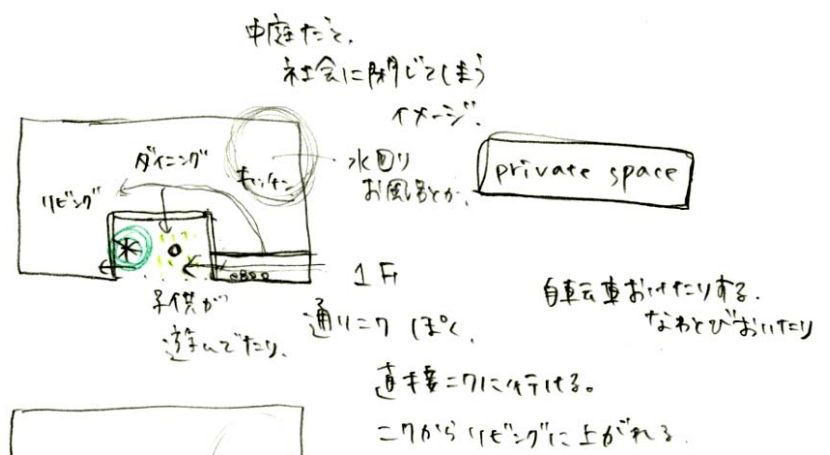 中庭だと、
社会に閉じてしまう
イメージ。
ダイニング
キッチン
リビング
水回り
お風呂とか、
private space
1F
子供が
遊んでたり、
通りニワっぽく、
自転車おけたりする。
なわとびおいたり
直接ニワに行ける。
ニワからリビングに上がれる